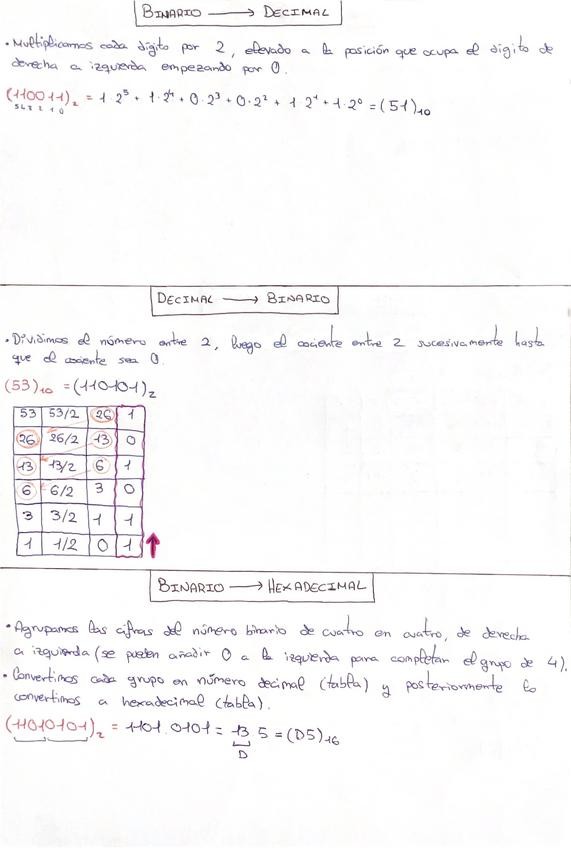 BINARIO → DECIMAL
• Multiplicamos cada dígito por 2, elevado a la posición que ocupa el dígito de
derecha a izquierda empezando por 0.
(110011)₂ = 1·2⁵ + 1·2⁴ + 0·2³ + 0·2² + 1·2¹ + 1·2⁰ = (51)₁₀
5 4 3 2 1 0
DECIMAL → BINARIO
• Dividimos el número entre 2, luego el cociente entre 2 sucesivamente hasta
que el cociente sea 0.
(53)₁₀ = (110101)₂
53 53/2 26 1
26 26/2 13 0
13 13/2 6 1
6 6/2 3 0
3 3/2 1 1
1 1/2 0 1 ↑
BINARIO → HEXADECIMAL
• Agrupamos las cifras del número binario de cuatro en cuatro, de derecha
a izquierda (se pueden añadir 0 a la izquierda para completar el grupo de 4).
• Convertimos cada grupo en número decimal (tabla) y posteriormente lo
convertimos a hexadecimal (tabla).
(11010101)₂ = 1101 . 0101 = 13 5 = (D5)₁₆
D